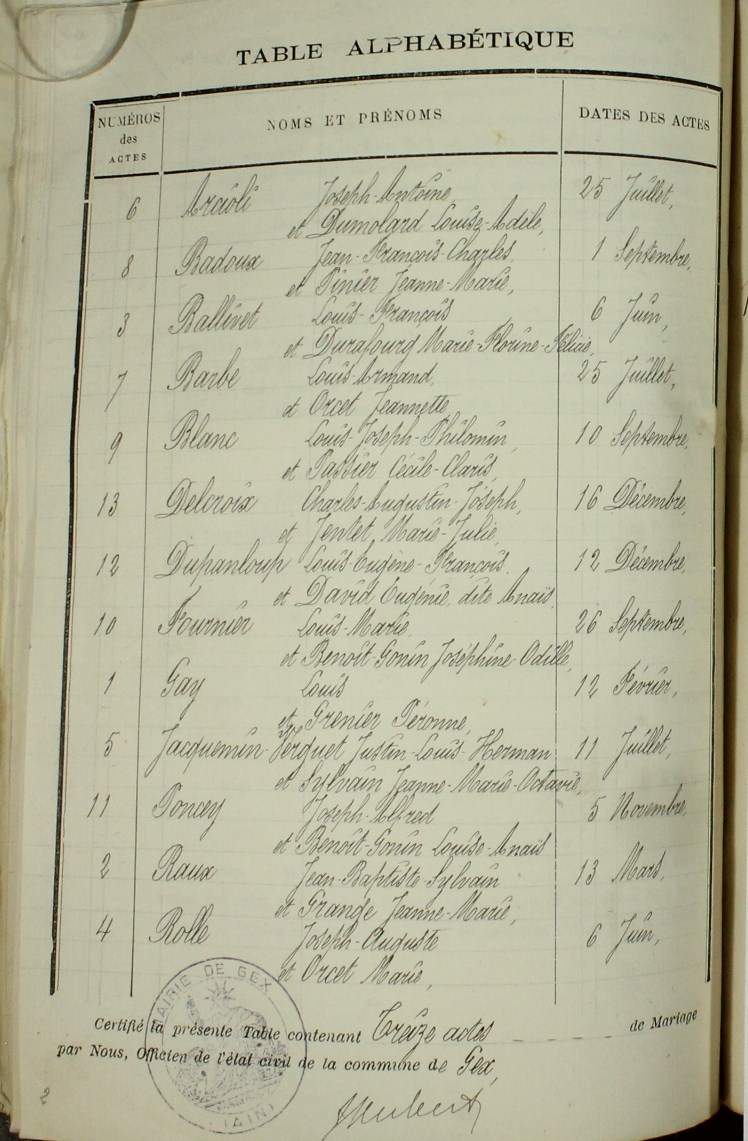 TABLE ALPHABÉTIQUE
NUMÉROS des ACTES NOMS ET PRÉNOMS DATES DES ACTES
6 Arcioli Joseph-Antoine 25 Juillet,
et Dumolard Louise-Adèle,
8 Badoux Jean-François-Charles, 1 Septembre,
et Pinier Jeanne-Marie,
3 Ballivet Louis-François 6 Juin,
et Durafourg Marie-Florine-Félicie,
7 Barbe Louis-Armand, 25 Juillet,
et Orcet Jeannette,
9 Blanc Louis-Joseph-Philomin, 10 Septembre,
et Passier Cécile-Claris,
13 Delcroix Charles-Augustin-Joseph, 16 Décembre,
et Jentet, Marie-Julie,
12 Dupanloup Louis Eugène-François. 12 Décembre,
et David Eugénie, dite Anaïs,
10 Fournier Louis-Marie. 26 Septembre,
et Benoît-Gonin Joséphine-Odille,
1 Gay Louis 12 Février,
et Grenier Péronne,
5 Jacquemin-Verguet Justin-Louis-Herman 11 Juillet,
et Sylvain Jeanne-Marie-Octavie,
11 Poncey Joseph-Alfred 5 Novembre,
et Benoît-Gonin Louise-Anaïs
2 Raux Jean-Baptiste-Sylvain 13 Mars,
et Grange Jeanne-Marie,
4 Rolle Joseph-Auguste 6 Juin,
et Orcet Marie,
MAIRIE DE GEX
(AIN)
Certifié la présente Table contenant Treize actes de Mariage
par Nous, Officier de l'état civil de la commune de Gex,
2